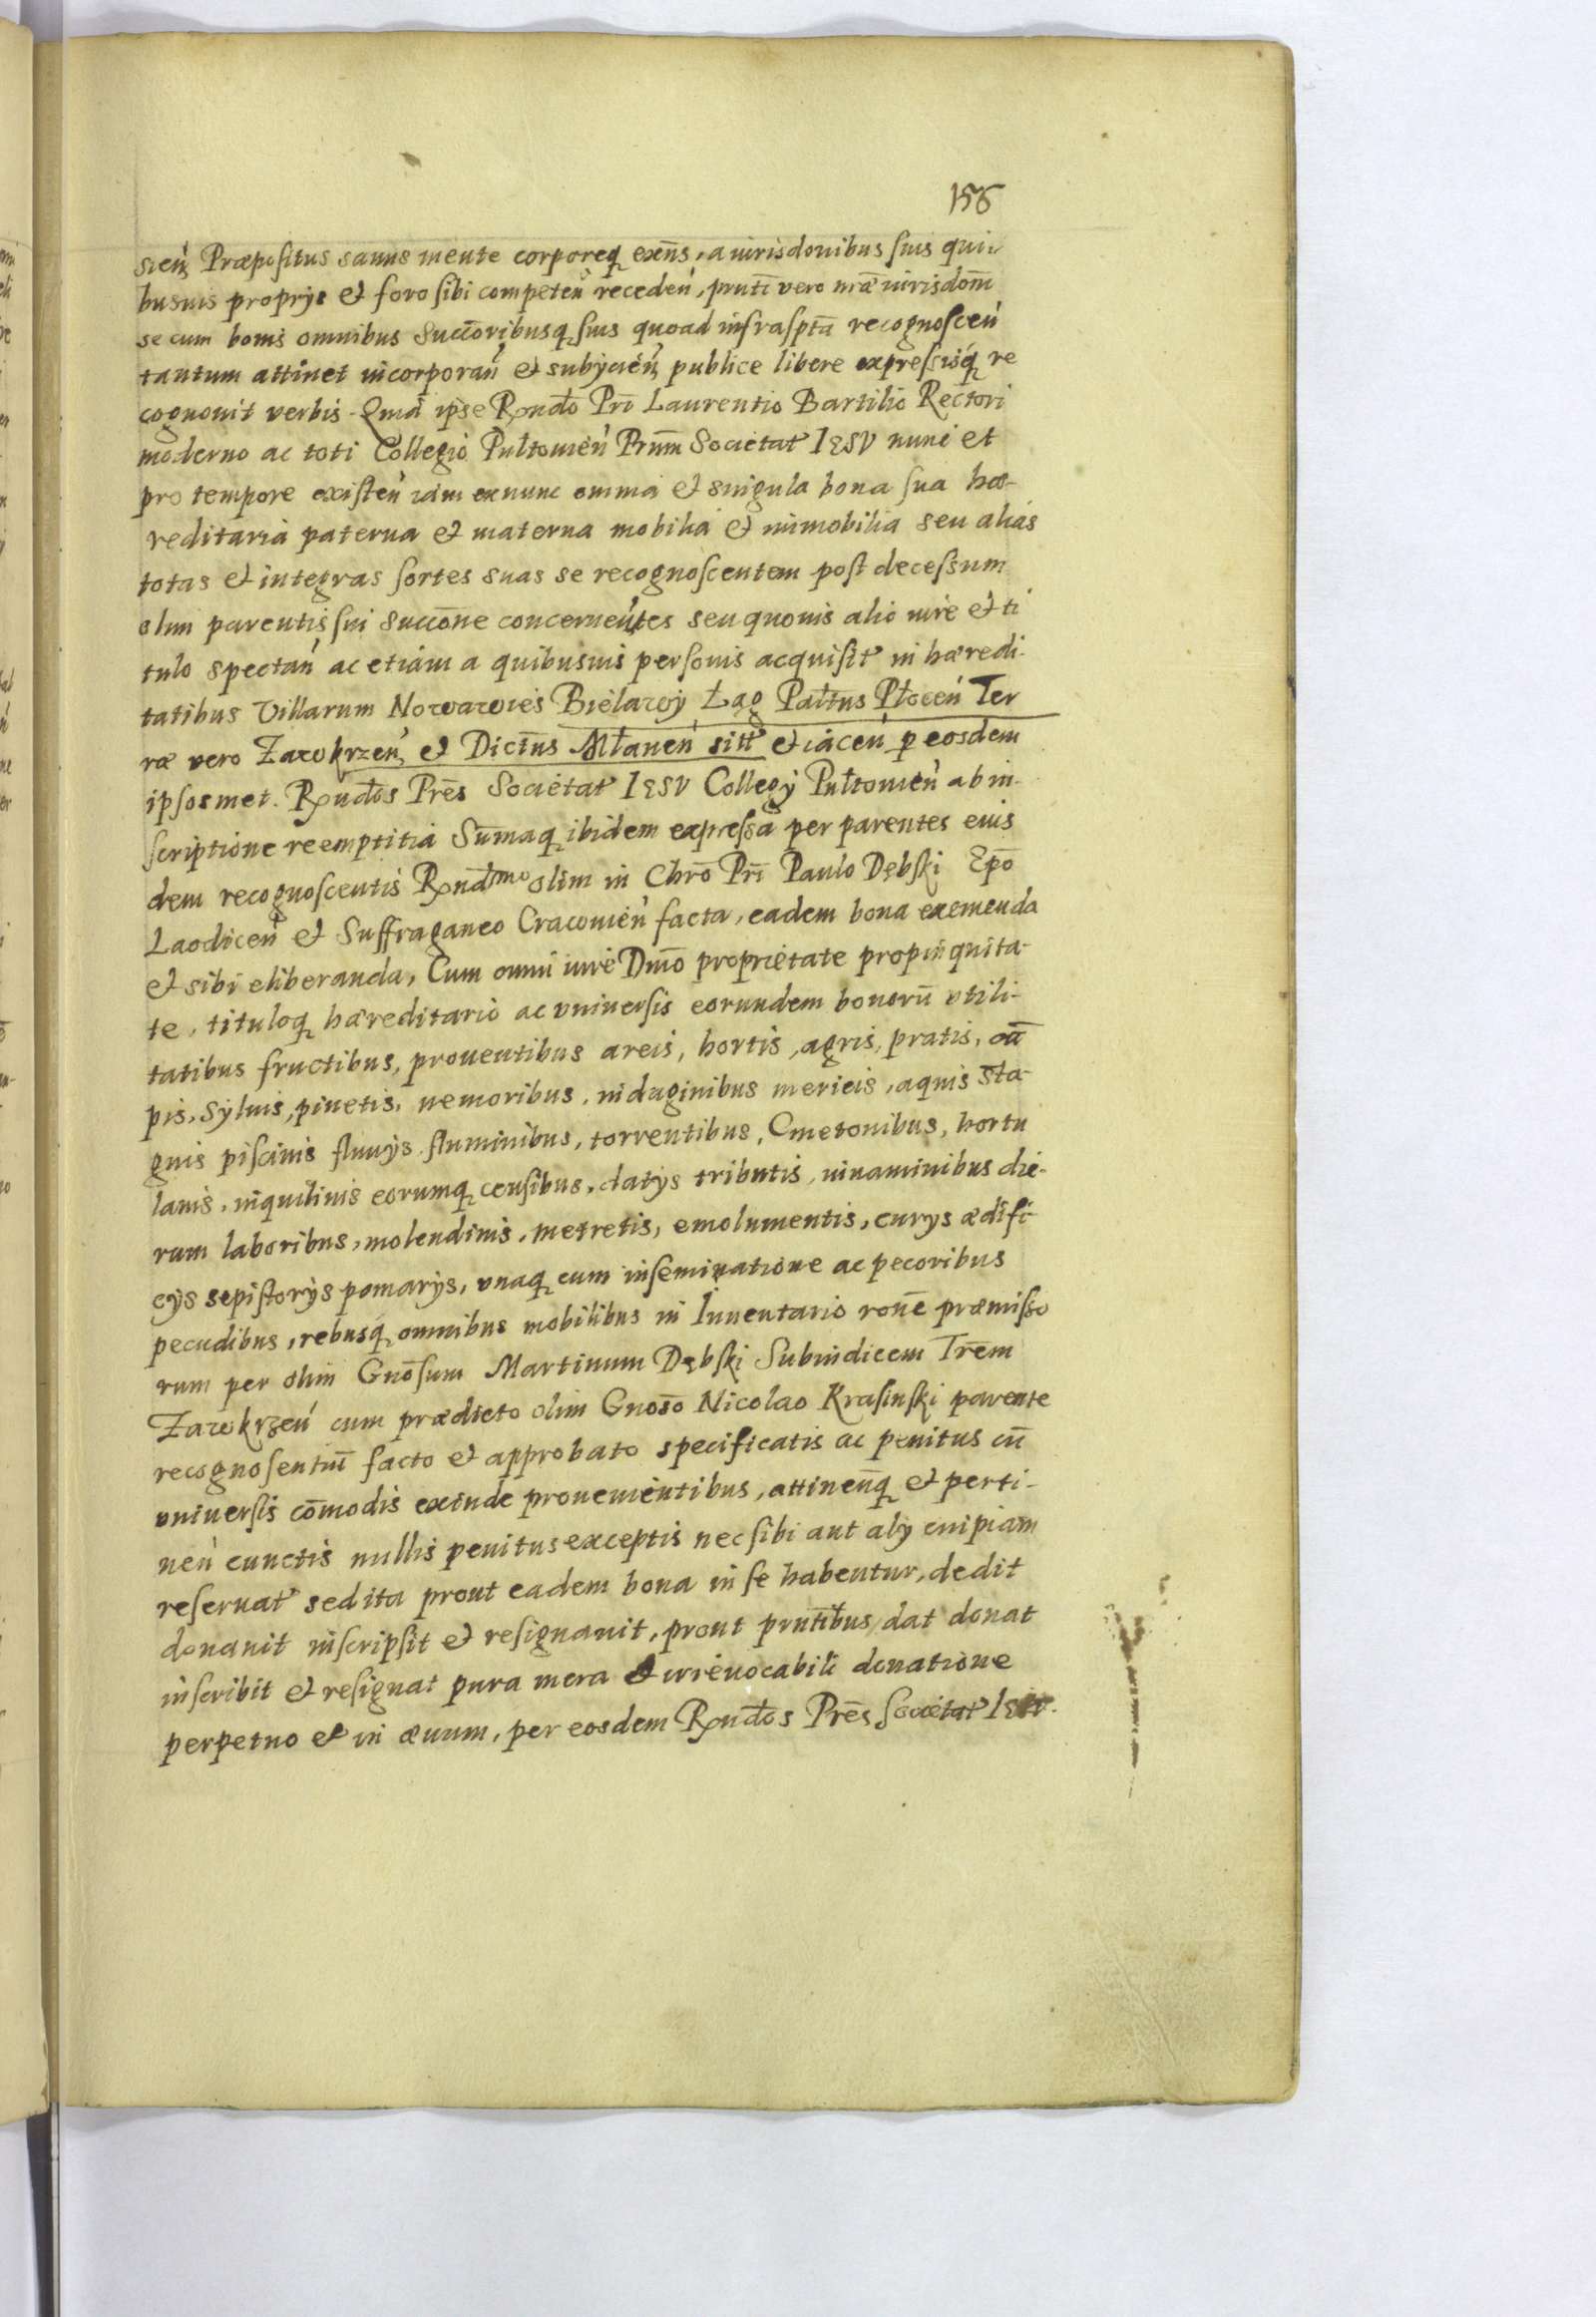 156
sień Præpositus sanus mente corporeq exn̄s, a iurisdonibus suis qui-
busuis proprijs et foro sibi competeń recedeń, pruti vero nr̄æ iurisdoni
se cum bonis omnibus succōribusq suis quoad infrasptā recognosceń
tantum attinet incorporań et subijcień publice libere expressisq re
cognouit verbis. Quia ipse Rx̄ndo Pri Laurentio Bartilio Rectori
moderno ac toti Collegio Pultouień Prum Societat IESV nunc et
pro tempore existeń iam exnunc omnia et singula bona sua hæ-
reditaria paterna et materna mobilia et immobilia seu alias
totas et integras sortes suas se recognoscentem post decessum
olim parentis sui succōne concernentes seu quouis alio iure et ti
tulo spectań ac etiam a quibusuis personis acquisit in hæredi-
tatibus Villarum Nowawies Bielawy Łąg Pałtus Płoceń Ter
ræ vero Zawkrzeń et Dictus Mławeń sitt et iaceń p eosdem
ipsosmet Rx̄ndos Prēs Societat IESV Collegij Pultouień ab in-
scriptione reemptitia Sūmaq ibidem expressa per parentes eius
dem recognoscentis Rx̄ndmo olim in Chrō Pri Paulo Dębski Epō
Laodiceń et Suffraganeo Cracouień facta, eadem bona exemenda
et sibi eliberanda, Cum omni iure Dn̄io proprietate propinquita-
te, tituloq hæreditario ac vniuersis eorundem bonorū vtili-
tatibus fructibus, prouentibus areis, hortis, agris, pratis, cā
pis, syluis, pinetis, nemoribus, indaginibus mericis, aquis sta-
gnis piscinis fluuijs fluminibus, torrentibus, Cmetonibus, hortu
lanis, inquilinis eorumq censibus, datijs tributis, iuuaminibus die-
rum laboribus, molendinis, metretis, emolumentis, curijs ædifi-
cijs sepistorijs pomarijs, vnaq cum inseminatione ac pecoribus
pecudibus, rebusq omnibus mobilibus in Inuentario ronē præmisso
rum per olim Gnōsum Martinum Dębski Subiudicem Trēm
Zawkrzeń cum prædicto olim Gnosō Nicolao Krasinski parente
recognosentiū facto et approbato specificatis ac penitus cū
vniuersis cōmodis exinde prouenientibus, attineńq et perti-
neń cunctis nullis penitus exceptis nec sibi aut alij cuipiam
reseruat sed ita prout eadem bona in se habentur, dedit
donauit inscripsit et resignauit, prout prntibus dat donat
inscribit et resignat pura mera et irreuocabili donatione
perpetuo et in æuum, per eosdem Rx̄ndos Prēs Societat IESV.